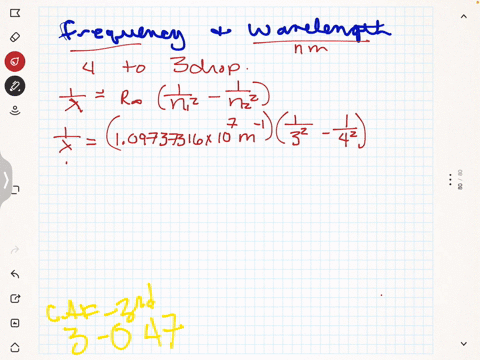 Frequency + Wavelength
nm
4 to 3 drop.
1/λ = R∞ (1/n₁² - 1/n₂²)
1/λ = (1.09737316x10⁷m⁻¹)(1/3² - 1/4²)
CAF-3rd
3-047